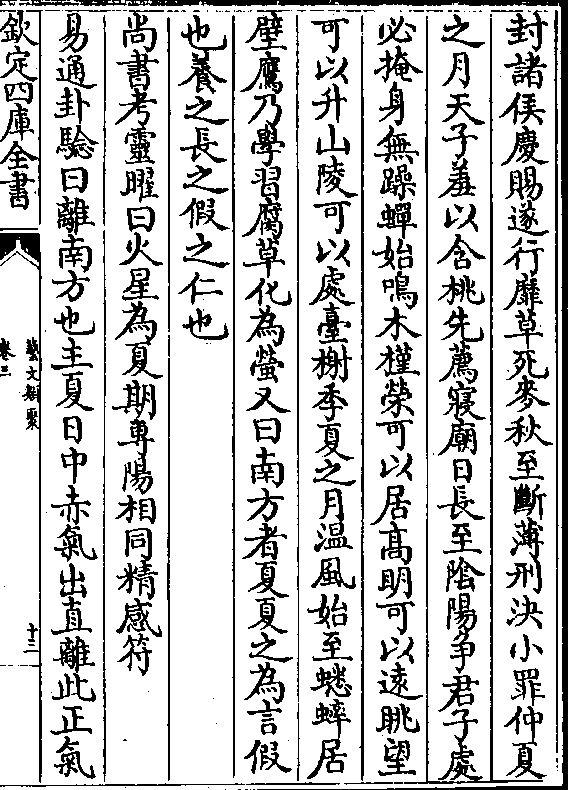 封諸侯慶賜遂行靡草死麥秋至斷薄刑決小罪仲夏
之月天子羞以含桃先薦寢廟日長至陰陽争君子處
必掩身無躁蟬始鳴木槿榮可以居髙明可以逺眺望
可以升山陵可以處臺榭季夏之月温風始至蟋蟀居
壁鷹乃學習腐草化為螢又曰南方者夏夏之為言假
也養之長之假之仁也
尚書考靈曜曰火星為夏期專陽相同精感符
易通卦驗曰離南方也主夏日中赤氣出直離此正氣
欽定四庫全書
藝文類聚
卷三
十三